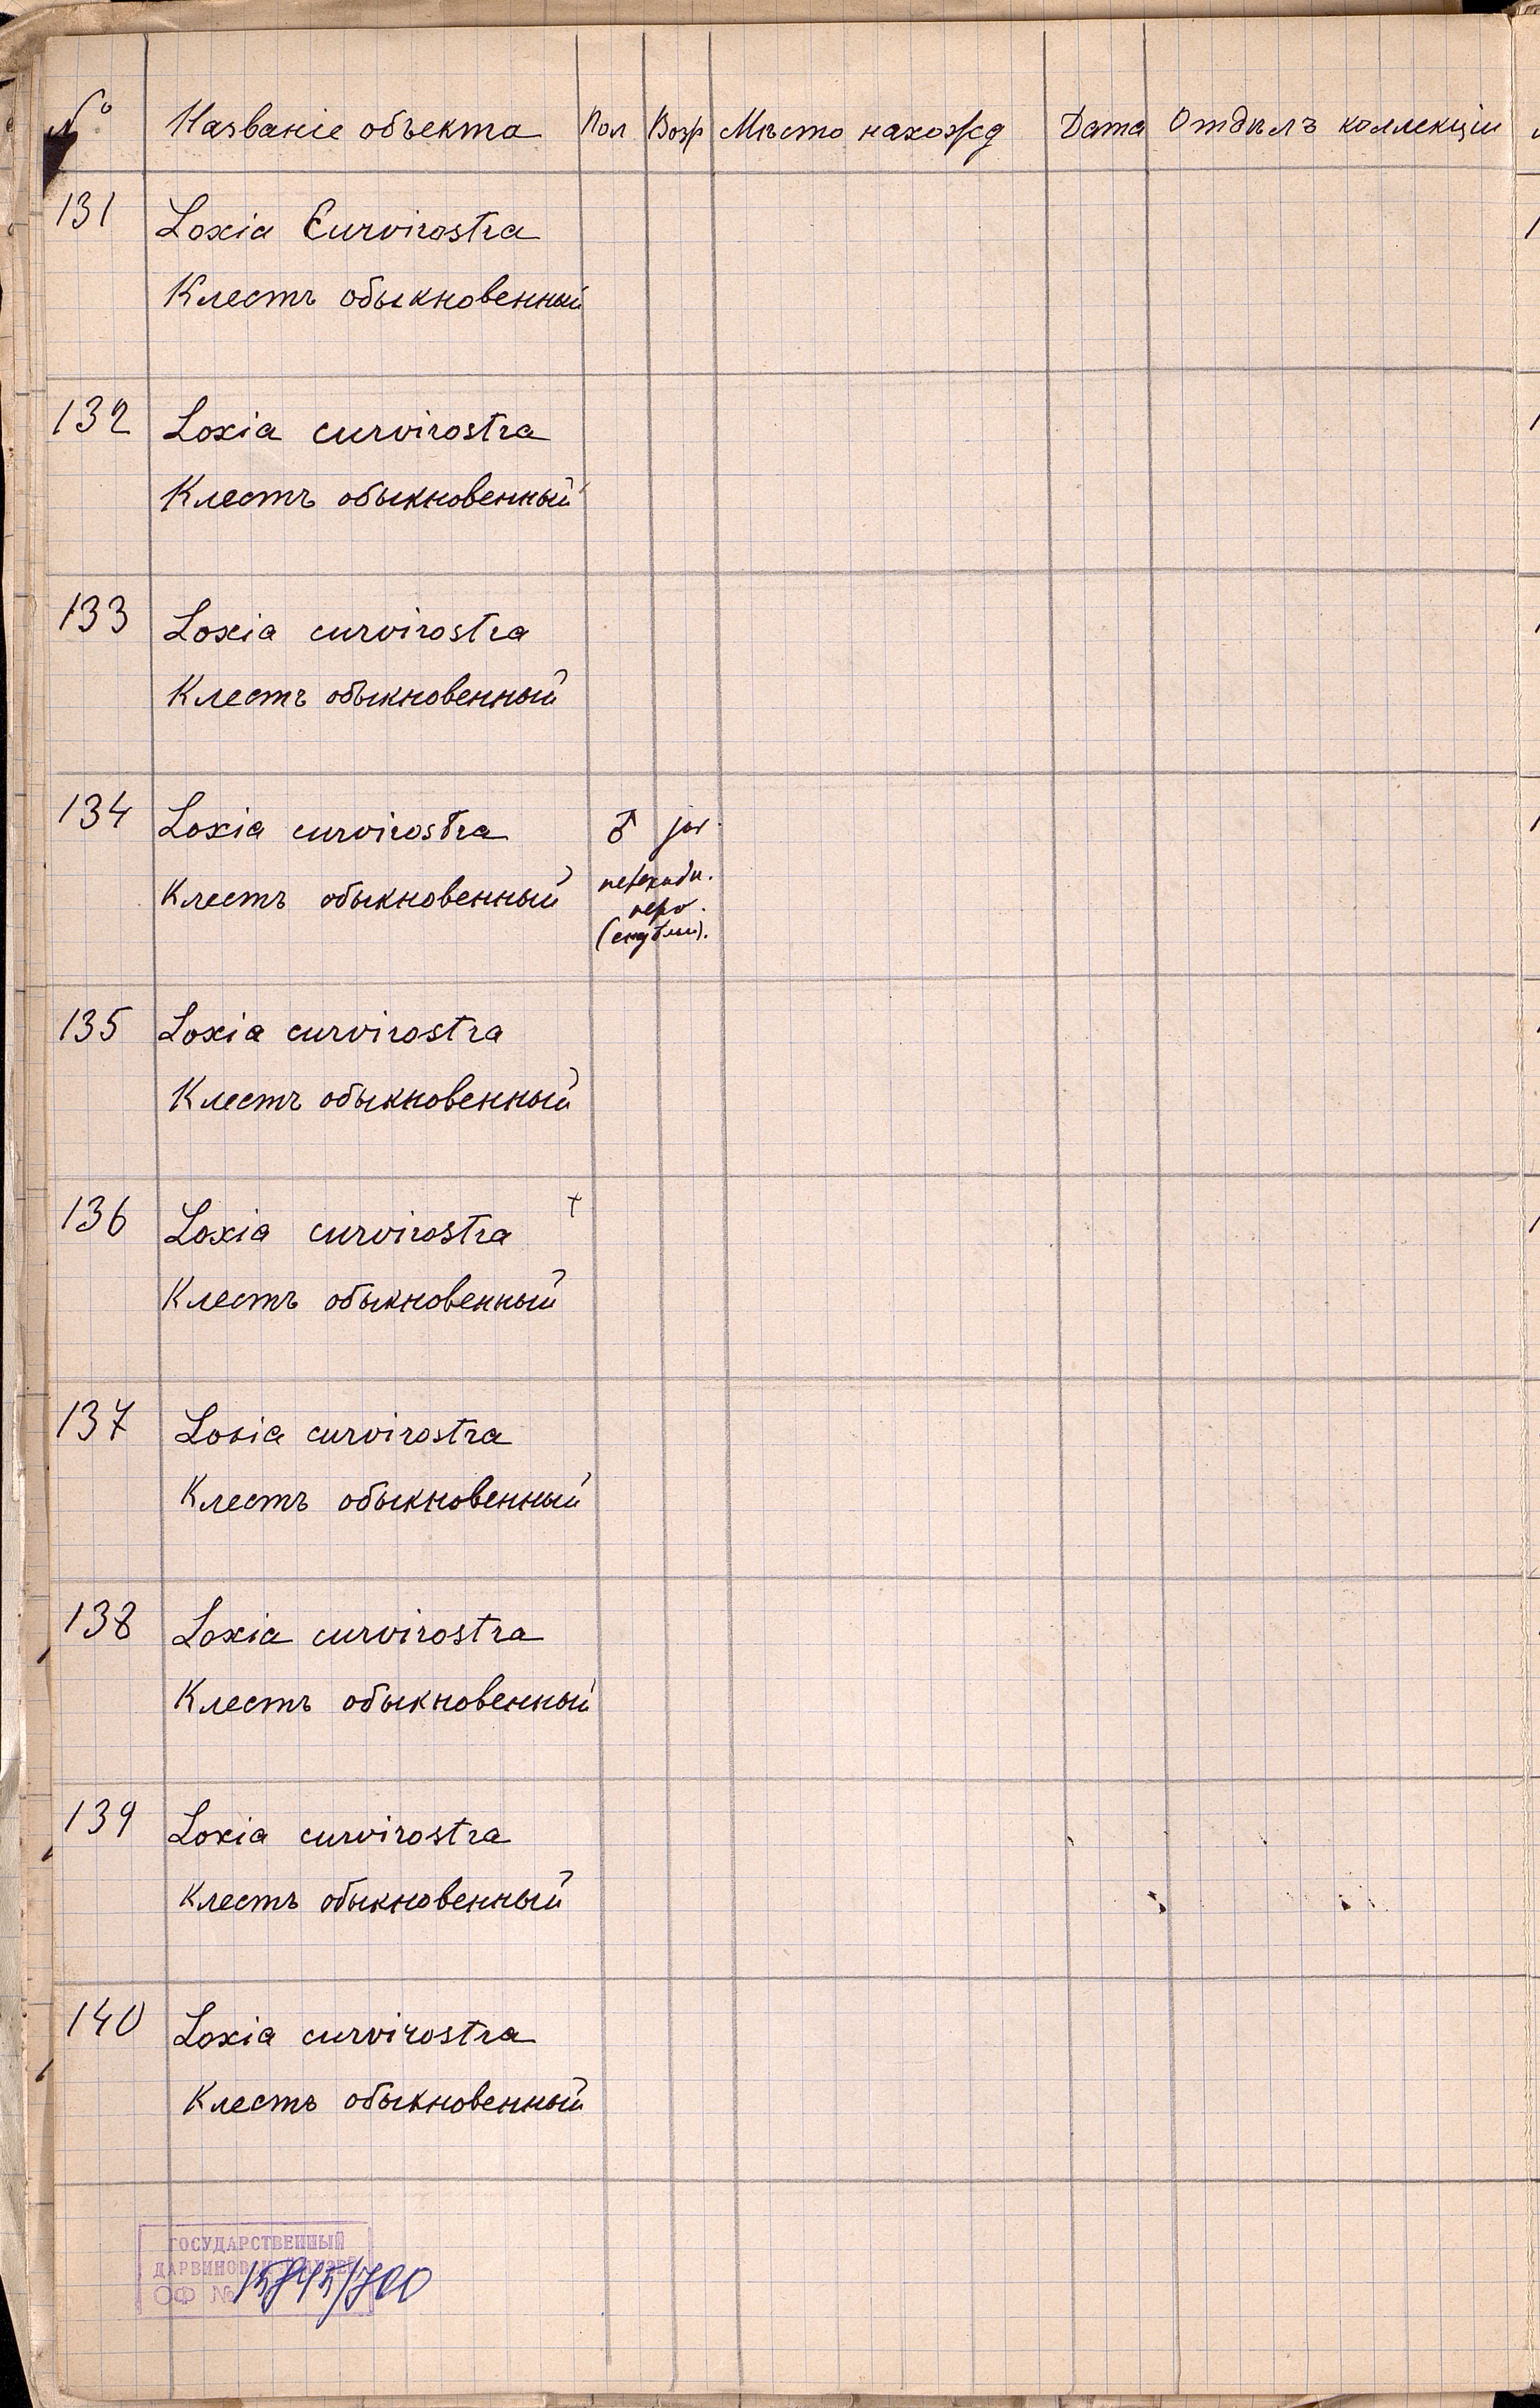 № Названіе объекта Пол Возр Мѣсто нахожд Дата Отдѣлъ коллекціи
131 Loxia Curvirostra
Клестъ обыкновенный
132 Loxia curvirostra
Клестъ обыкновенный
133 Loxia curvirostra
Клестъ обыкновенный
134 Loxia curvirostra ♂
Клестъ обыкновенный
перо.
135 Loxia curvirostra
Клестъ обыкновенный
136 Loxia curvirostra +
Клестъ обыкновенный
137 Loxia curvirostra
Клестъ обыкновенный
138 Loxia curvirostra
Клестъ обыкновенный
139 Loxia curvirostra
Клестъ обыкновенный
140 Loxia curvirostra
Клестъ обыкновенный
ГОСУДАРСТВЕННЫЙ
ДАРВИНОВСКИЙ МУЗЕЙ
ОФ №